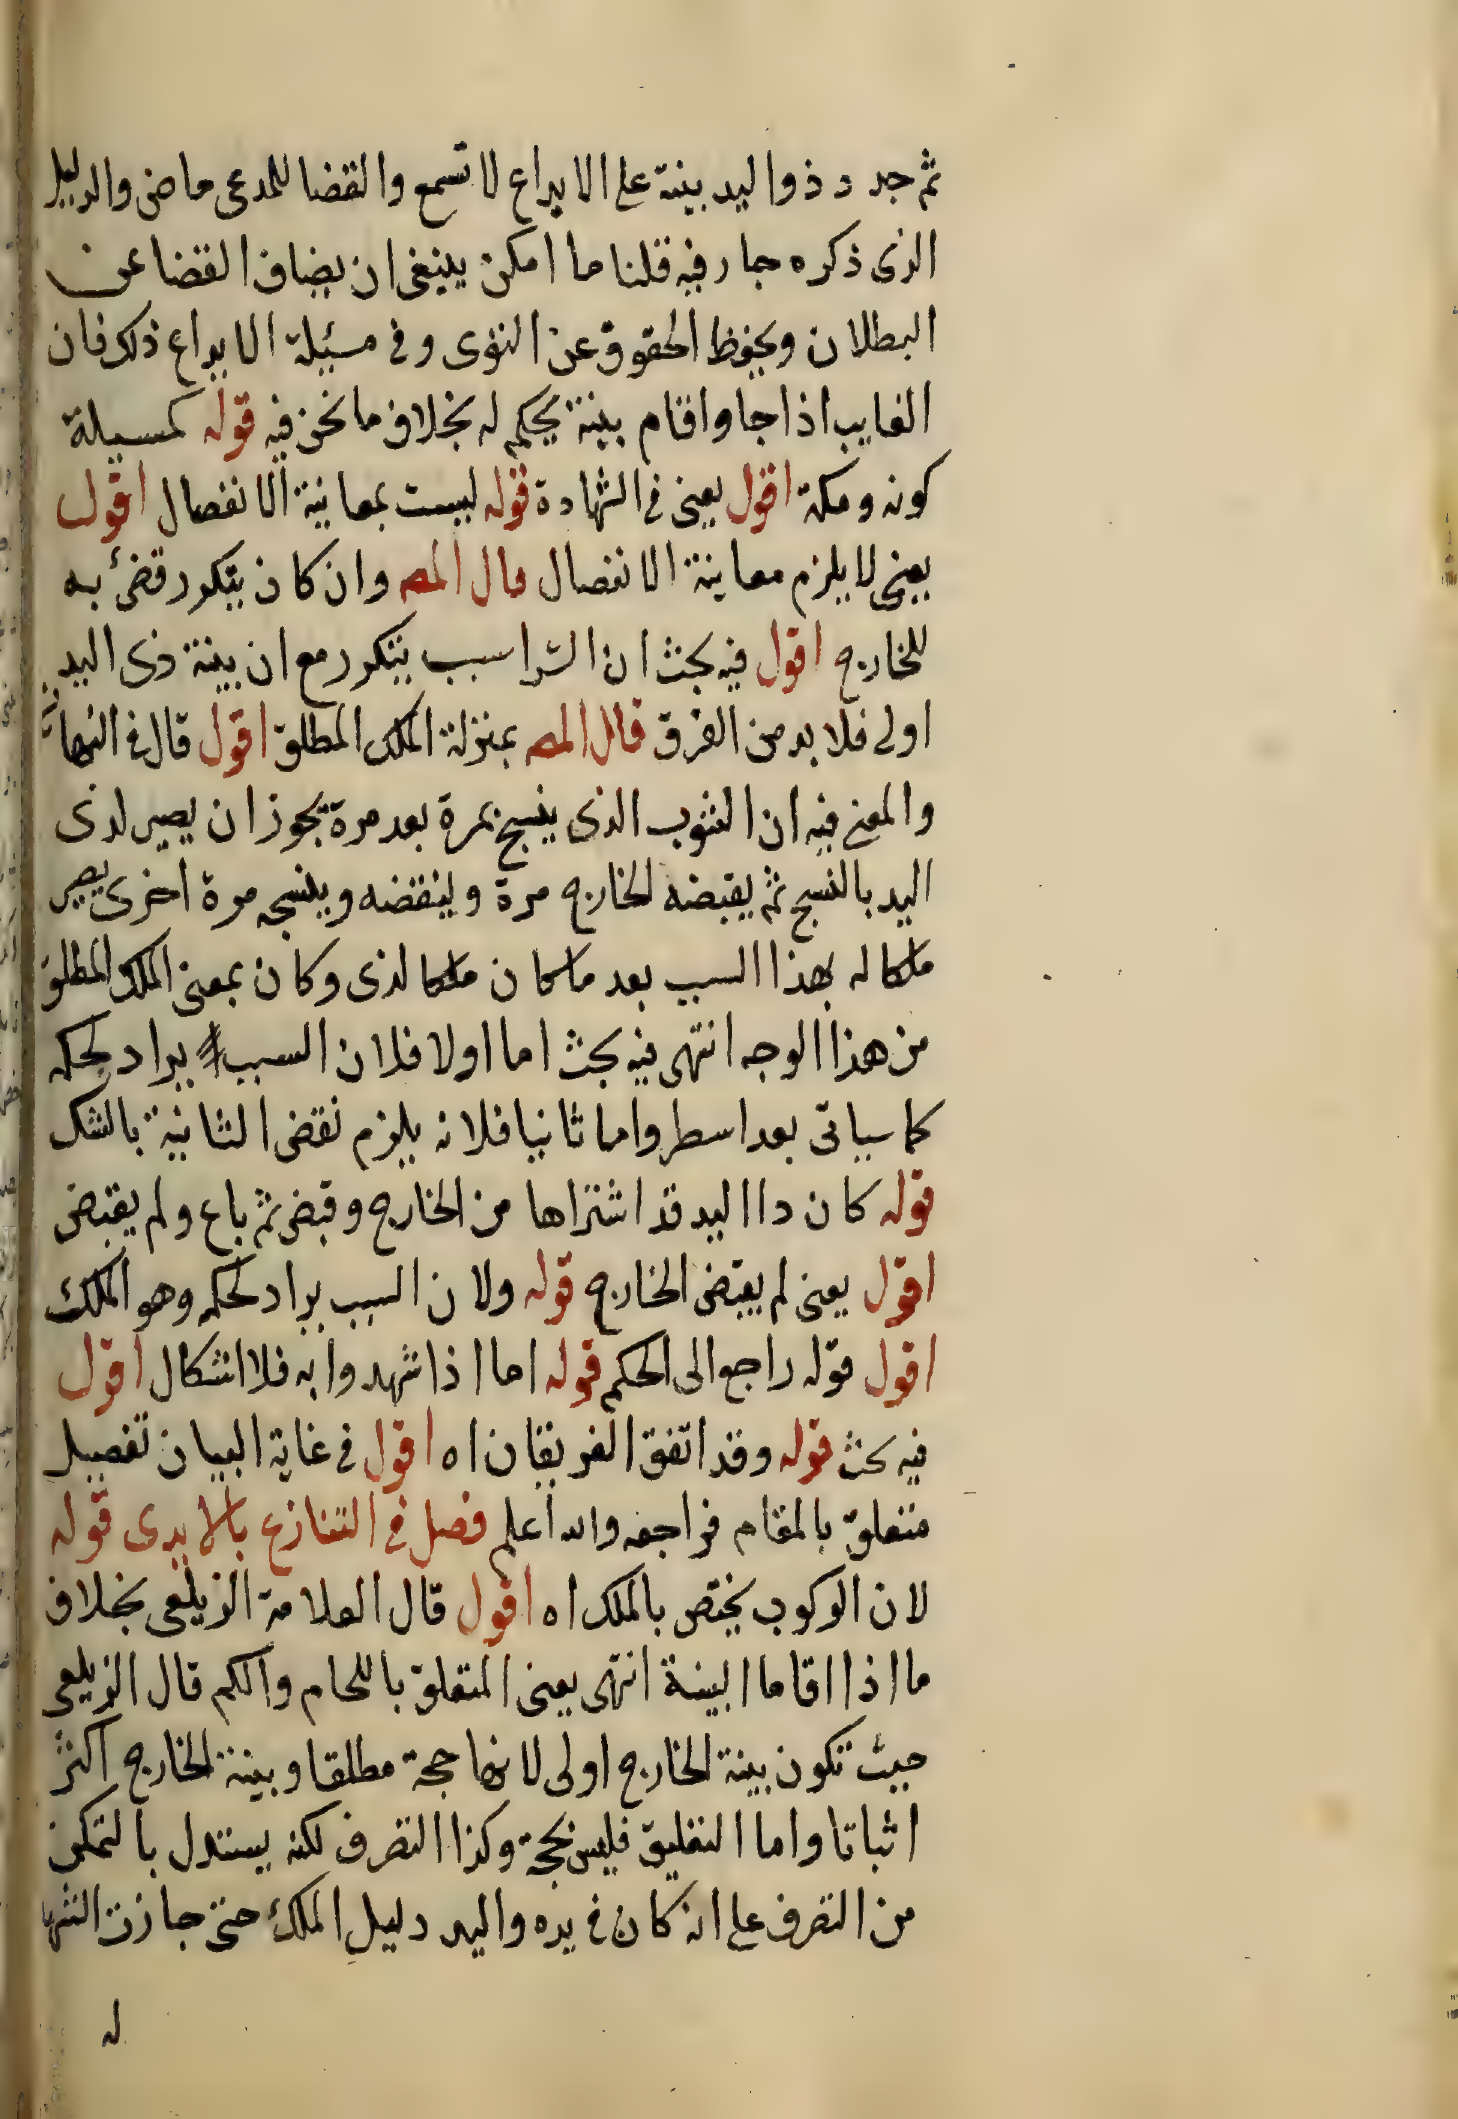 ثم جد د ذوا ليد بينة على الايداع لا تسمع والقضا للمدعى ماض والدليل
الذى ذكره جار فيه قلنا ما امكن ينبغى ان يضاف القضا عن
البطلان ويحفظ الحقوق عن التوى وفى مسئيلة الايداع ذلك فان
الغايب اذا جا واقام بينة يحكم له بخلاف ما نحن فيه قوله كمسيلة
كونه ومكة اقول يعنى فى الشهادة قوله ليست بمعاينة الانفصال اقول
يعنى لا يلزم معاينة الانفصال قال المص وان كان يتكرر قضئ به
للخارج اقول فيه بحث ان الشرا سبب يتكرر مع ان بينة ذى اليد
اولى فلا بد من الفرق قال المص بمنزلة الملك المطلق اقول قال فى النهاية
والمعنى فيه ان الثوب الذى ينسج مرة بعد مرة يجوز ان يصير لذى
اليد بالنسج ثم يقبضه الخارج مرة وينقضه وينسجه مرة اخرى يصير
ملكا له بهذا السبب بعد ما كان ملكا لذى وكان بمعنى الملك المطلق
من هذا الوجه انتهى فيه بحث اما اولا فلان السبب يراد لحكمه
كما سياتى بعد اسطر واما ثانيا فلانه يلزم نقض الثانية بالشك
قوله كان ذا اليد قد اشتراها من الخارج وقبض ثم باع ولم يقبض
اقول يعنى لم يقبض الخارج قوله ولان السبب يراد لحكمه وهو الملك
اقول قوله راجع الى الحكم قوله اما اذا شهدوا به فلا اشكال اقول
فيه بحث قوله وقد اتفق الفريقان اه اقول فى غاية البيان تفصيل
متعلق بالمقام فراجعه والله اعلم فصل فى التنازع بالايدى قوله
لان الركوب يختص بالملك اه اقول قال العلامة الزيلعى بخلاف
ما اذا اقاما البينة انتهى يعنى المتعلق باللجام والكم قال الزيلعى
حيث تكون بينة الخارج اولى لانها حجة مطلقا وبينة الخارج اكثر
اثباتا واما التعليق فليس بحجة وكذا التصرف لكنه يستدل بالتمكن
من التصرف على انه كان فى يده واليد دليل الملك حتى جازت الشها
له